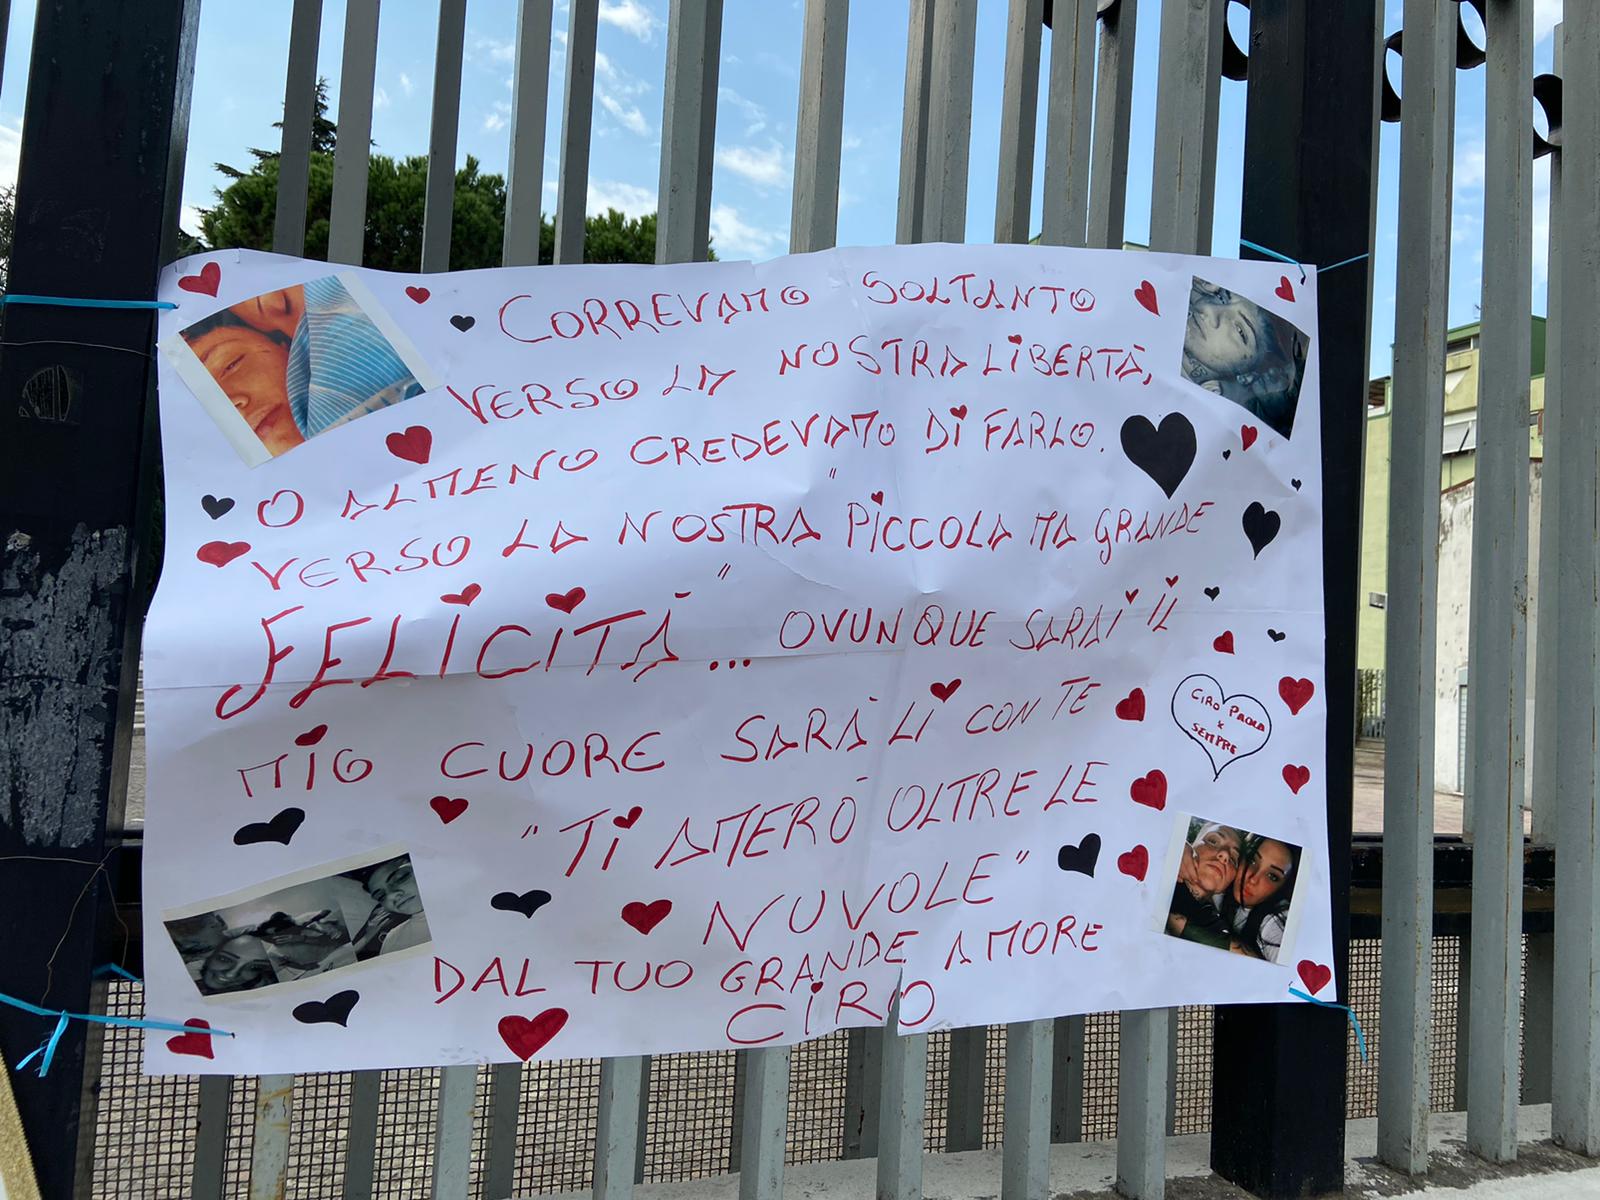 CORREVAMO SOLTANTO
VERSO LA NOSTRA LIBERTÀ,
O ALMENO CREDEVAMO DI FARLO.
VERSO LA NOSTRA "PICCOLA MA GRANDE
FELICITÀ" ... OVUNQUE SARAI IL
MIO CUORE SARÀ LÌ CON TE
"TI AMERÒ OLTRE LE
NUVOLE"
DAL TUO GRANDE AMORE
CIRO
CIRO PAOLA
X
SEMPRE